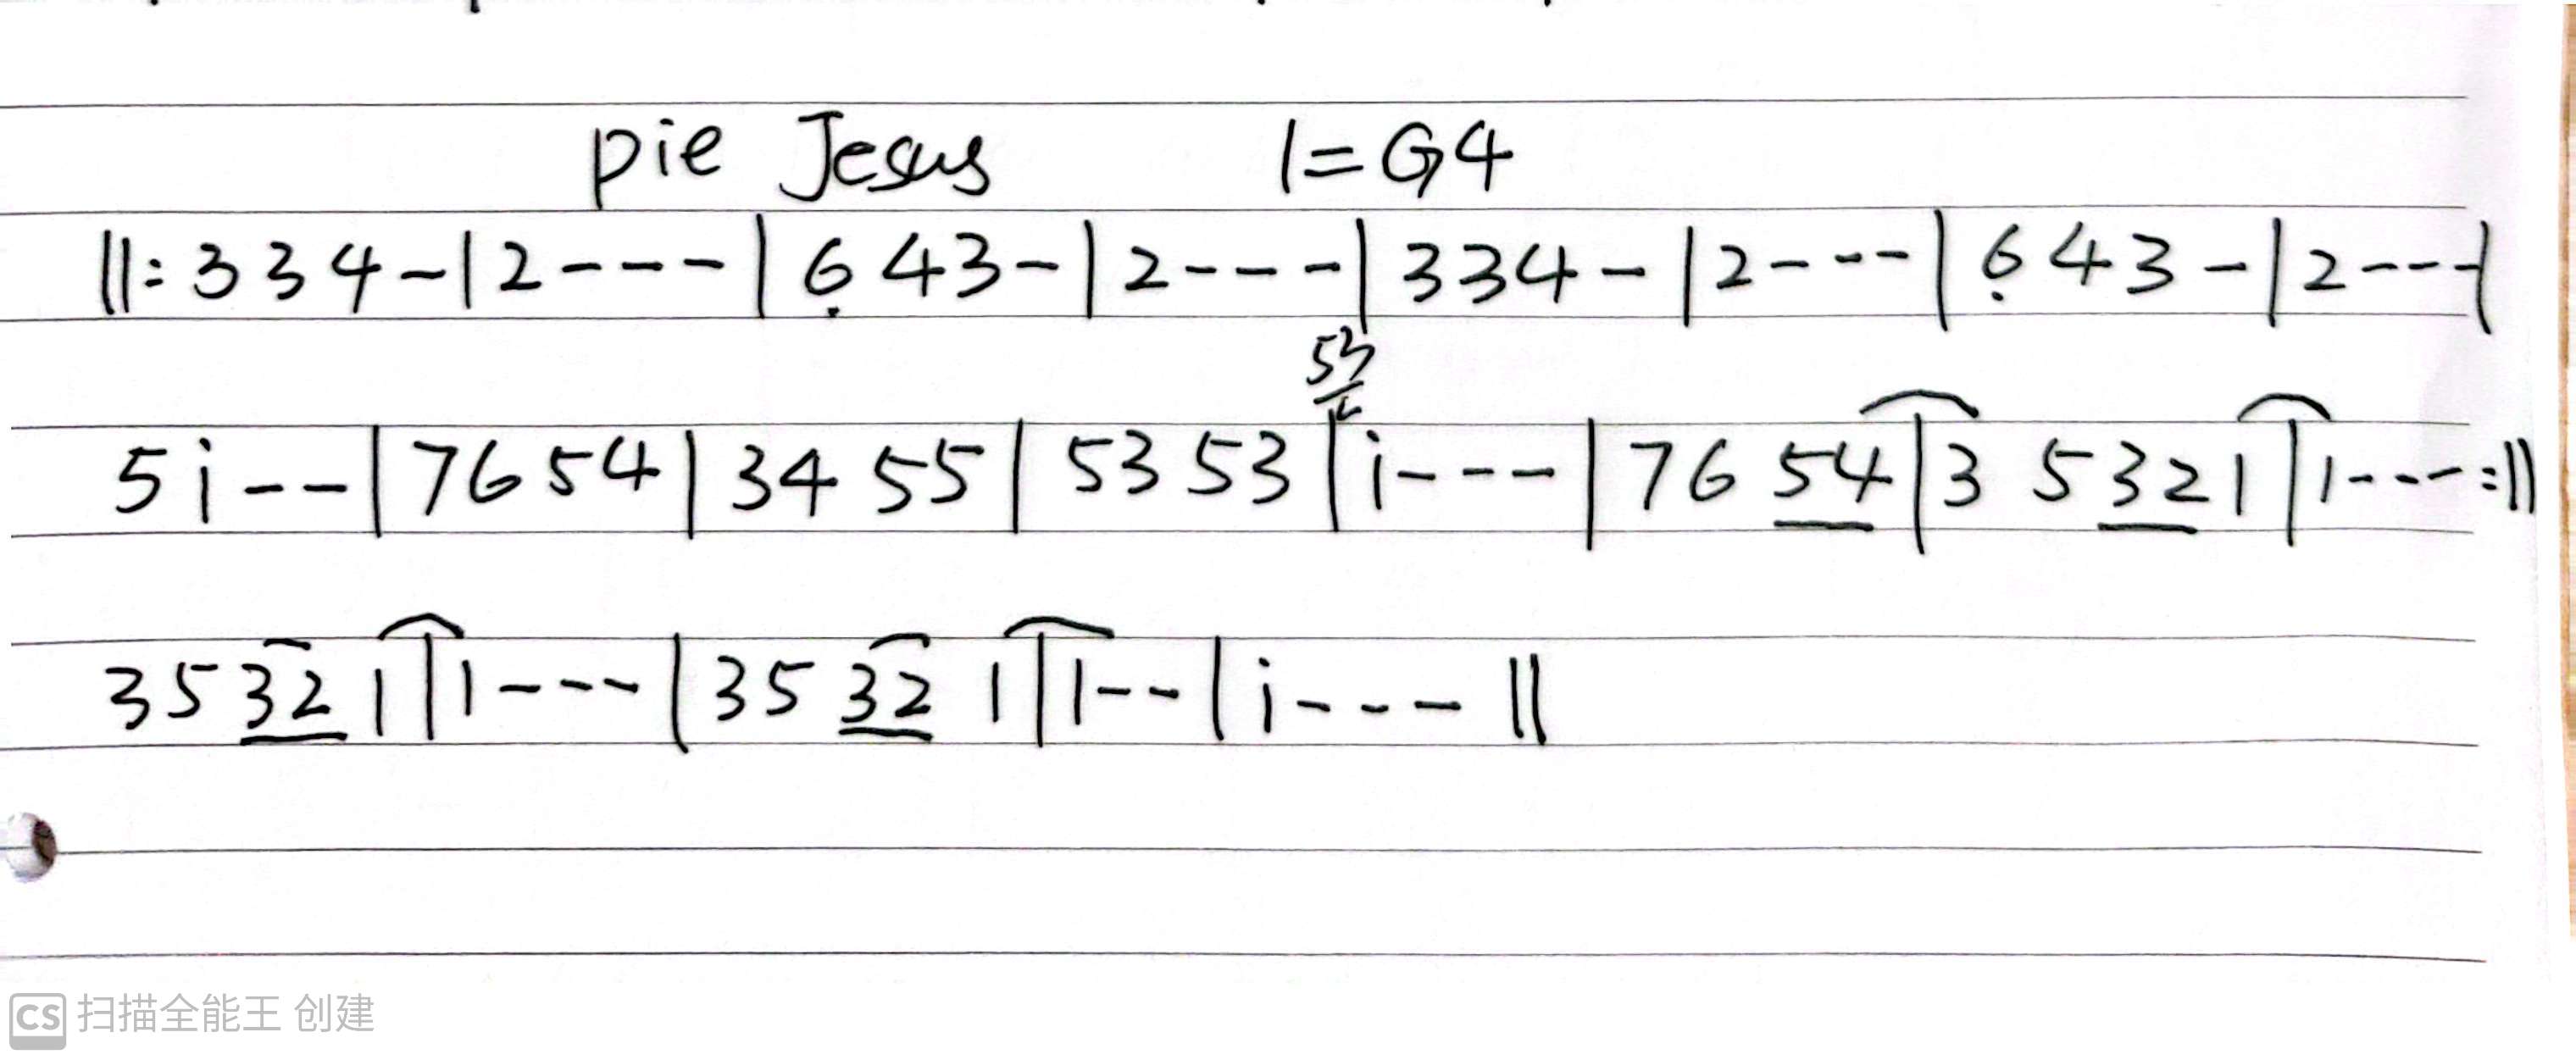 pie Jesus 1=G4
||: 3 3 4 - | 2 - - - | 6̣ 4 3 - | 2 - - - | 3 3 4 - | 2 - - - | 6̣ 4 3 - | 2 - - - |
53
5 i - - | 7 6 5 4 | 3 4 5 5 | 5 3 5 3 | i - - - | 7 6 5 4 | 3 5 3 2 1 | 1 - - - :||
3 5 3 2 1 | 1 - - - | 3 5 3 2 1 | 1 - - | i - - - ||
CS 扫描全能王 创建